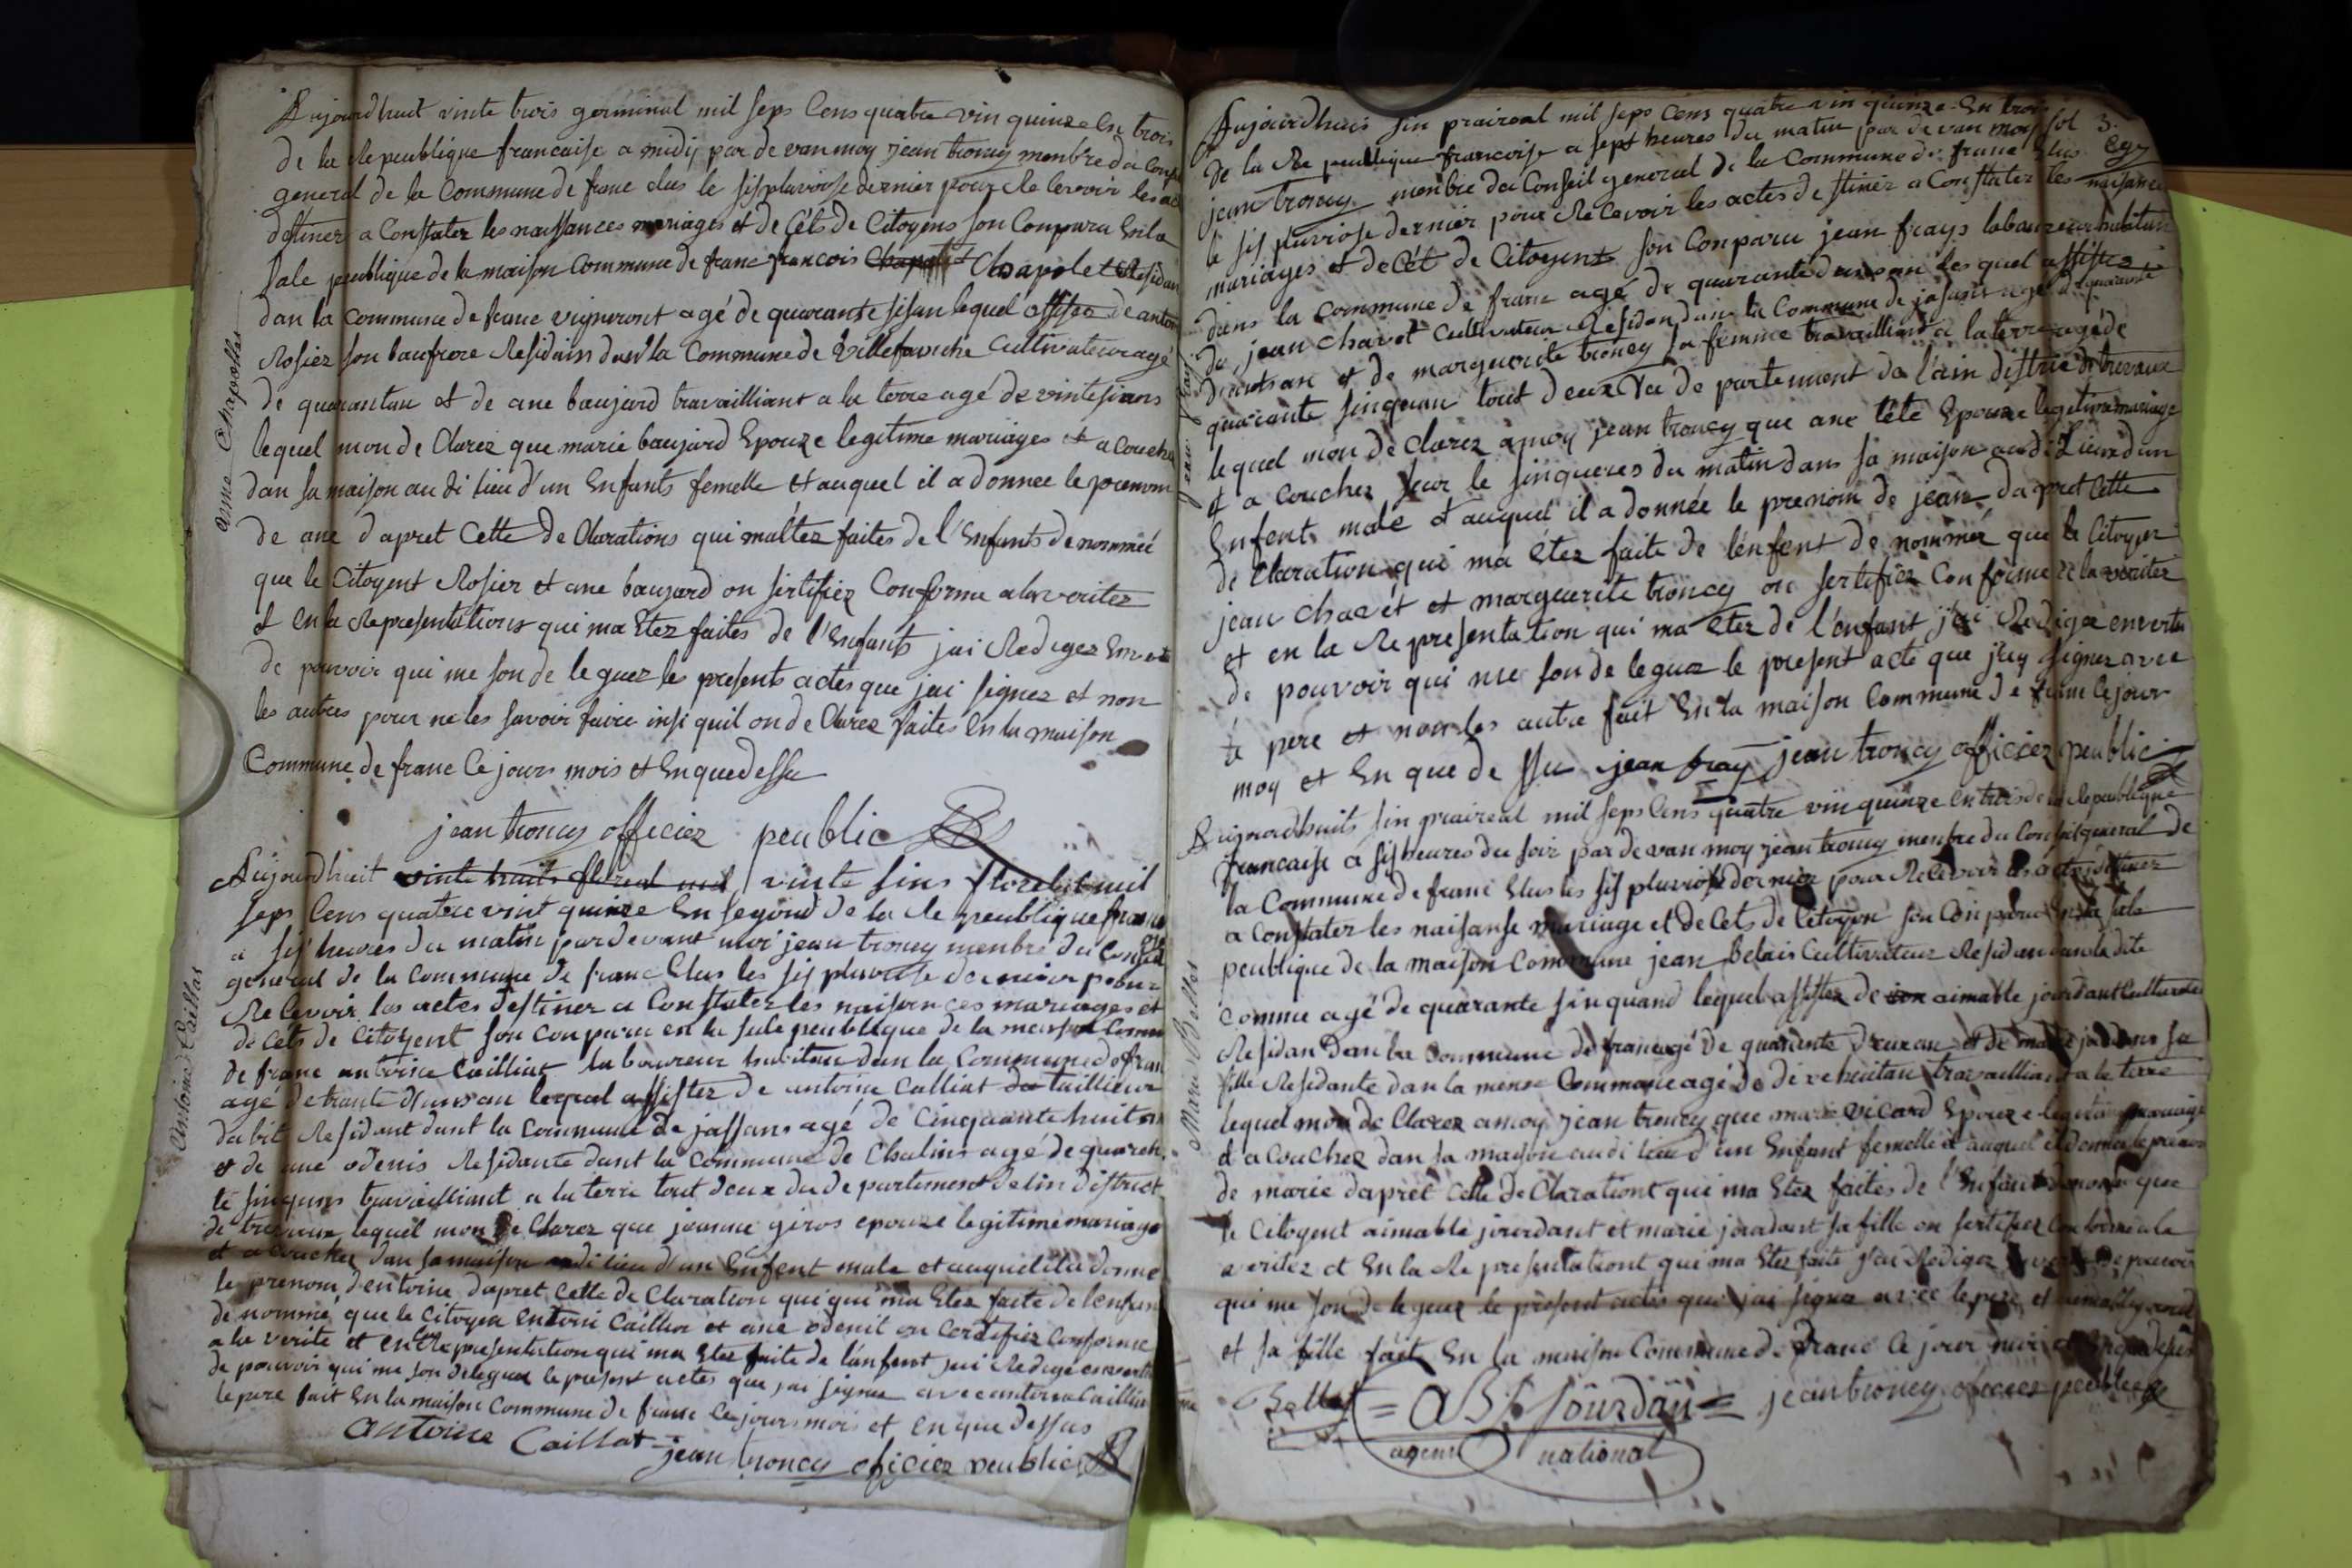 anne Chapollet
Aujourdhuit vinte trois germinal mil seps Cens quatre vin quinze En trois
de la Re peublique francaise a midy par de van moy jean troncy menbre du
general de la Commune de franc elus le sis pluviose dernier pour Re Cevoir les
destinez a Constater les naissances mariages et de Céts de Citoyens son Conparu En la
sale peublique de la maison Commune de franc francois Chapolet Residan
dan la Commune de franc vigneront agé de quarante sisan lequel assistez de
Rosier son baufrere Residain dan la Commune de Villefranche Cultivateur agé
de quarantan et de ane baujard travailliant a la terre agé de vinte sisans
lequel mon de Clarez que marie baujard Epouze legitime mariages et a Couchez
dan sa maison au di lieu d'un Enfants femelle et auquel il a donnee le prenom
de ane d'apret Cette de Clarations qui mattez faites de l'Enfants de nommée
que le Citoyent Rosier et ane baujard on sertifiez Conforme a la veritez
et en la Representations qui ma Etez faites de l'Enfants jai Redigez
de pouvoir qui me son de leguez les presents actes que jai signez et non
les autres pour ne les savoir faire insi quil on de Clarez faites En la maison
Commune de franc Ce jours mois et En que dessu
jean troncy officiez peublic
Antoine Caillat
Aujourdhuit vinte huit floreal mil vinte sins floreal mil
seps Cens quatre vint quinze En segond de la Re peublique
a sis heures du matin par devant moi jean troncy menbre du Conseil
general de la Commune de franc Elus les sis pluviose dernier pour
Re Cevoir les actes destinez a Constater les naisances mariages et
de Céts de Citoyent son Conparu en la sale peublique de la maison
de franc antoine Cailliat laboureur habitan dan la Commune de fran
agé de trante deusan lequel assistez de antoine Calliat tailleur
dabit Residant dant la Commune de jassans agé de Cinquante huit an
et de ane odenis Residante dant la Commune de Chalins agé de quaren
te sinquns travailliant a la terre tout deux du de partement delin district
de trevoux lequel mon de Clarez que jeanne giros epouze legitime mariage
et a Couchez dan sa maison au di lieu d'un Enfent male et auquel il a donne
le prenom dentoine dapret Cette de Claration qui qui ma Etez faite de lenfan
de nommé que le Citoyen entoine Caillia et ane odenit on Certifiez Conforme
a la verite et en la representation qui ma Etez faite de lanfent jai Redigé en vertu
de pouvoir qui me son delegue le present actes que jai signe avec antoine Cailliat
le pere fait En la maison Commune de franc Ce jours mois et en que dessus
antoine Caillat jean troncy officiez peublic
3.
jean fray
Aujourdhuis sin praireal mil seps Cens quatre vin quinze En trois
de la Re peublique francoise a sept heures du matin par de van moy
jean troncy menbre du Conseil general de la Commune de franc Elus
le sis pluviose dernier pour Re Cevoir les actes de stinez a Constater les naisance
mariages et de Cét de Citoyens son Conparu jean frays laboureur habitan
dans la Commune de franc agé de quarante deusan les quel assistez
de jean Chavet Cultivateur Residan dan la Commune de jasans agé de quarante
deusan et de marguerite troncy sa femme travailliant a la terre agé de
quarante sinquan tout deux du de partement de l'ain distric de trevoux
lequel mon de Clarez a moy jean troncy que ane Epouze legitime mariage
et a Couchez sur le sinqueres du matin dans sa maison au di Lieu dun
Enfent male et auquel il a donnée le prenom de jean dapret Cette
de Claration qui ma Etez faite de lenfent de nommé que le Citoyen
jean Chavet et marguerite troncy on sertifiez Conforme a la veritez
et en la Re presentation qui ma Etez de l'enfant jai Redigee en vertu
de pouvoir qui me son de leguez le present acte que jay signez avec
le pere et non les autre fait En la maison Commune de franc Ce jour
moy et En que de ssu jean fray jean troncy officiez peublic
Marie Bellet
Aujourdhuits sin praireal mil seps Cens quatre vin quinze en trois de la Republique
francaise a sis heures du soir par de van moy jean troncy menbre du Conseil general de
la Commune de franc Elus les sis pluviose dernier pour Re Cevoir les actes destinez
a Constater les naisanse mariage et de Cets de Citoyen son Conparu En la sale
peublique de la maison Commune jean Belais Cultivateur Residan dan la dite
Comune agé de quarante sinquand lequel assistez de aimable jourdant Cultivateur
Residan dan la Commune de franc agé de quarante deuxan et de marie jourdans sa
fille Residante dan la mème Commune agé de dixehuitan travailliant a la terre
lequel mon de Clarez a moy jean troncy que marie vicard Epouze legitime mariage
et a Couchez dan sa maison au di lieu d'un Enfant femelle et auquel il donnee le prenom
de marie dapret Cette de Clarationt qui ma Etez faites de l'Enfant de nomé que
le Citoyent aimable jourdant et marie jourdant sa fille on sertifiez Conforme a la
veritez et En la Re presentationt qui ma Etez faite j'ai Redigez En vertu de pouvoir
qui me son de legeuz le present actes que jai signez avec le pere et aimable jourdant
et sa fille fait En la maison Commune de franc Ce jour mois et En que dessus
Bellet = jourdan = jean troncy officiez peublic
agent national